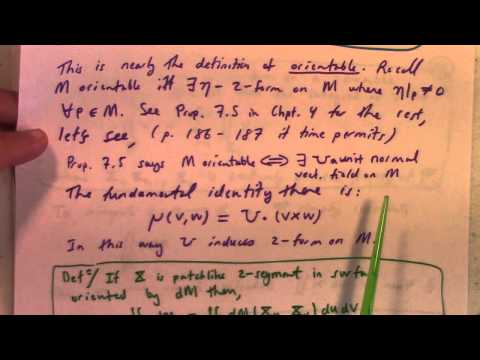 This is nearly the definition of orientable. Recall
M orientable iff ∃ η - 2-form on M where η|p ≠ 0
∀p∈M. See Prop. 7.5 in Chpt. 4 for the rest,
let's see, (p. 186-187 if time permits)
Prop. 7.5 says M orientable ⟺ ∃ U a unit normal
vect. field on M
The fundamental identity there is:
μ(v,w) = U•(v×w)
In this way U induces 2-form on M.
Defⁿ/ If X is patchlike 2-segment in surface
oriented by dM then,
dM(Xu, Xv) du dv